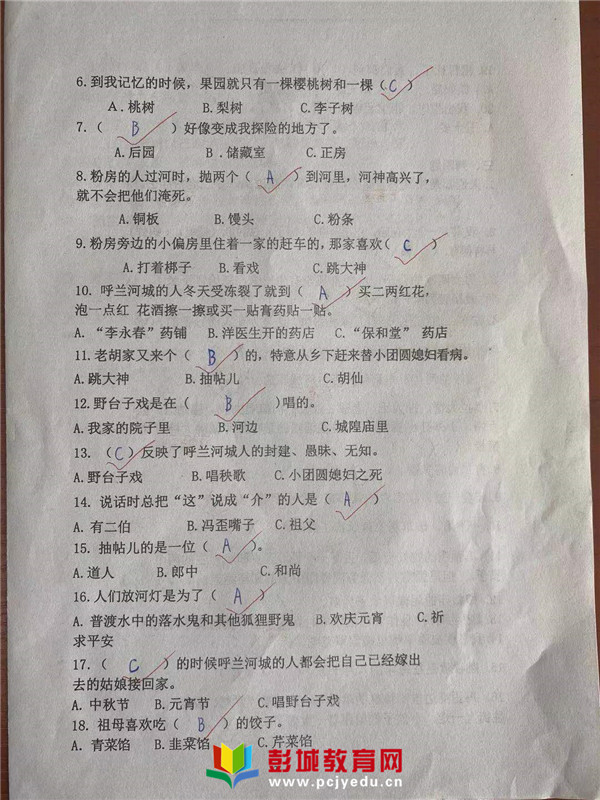 6. 到我记忆的时候，果园就只有一棵樱桃树和一棵（ C ）
A. 桃树 B. 梨树 C. 李子树
7. （ B ）好像变成我探险的地方了。
A. 后园 B . 储藏室 C. 正房
8. 粉房的人过河时，抛两个（ A ）到河里，河神高兴了，
就不会把他们淹死。
A. 铜板 B. 馒头 C. 粉条
9. 粉房旁边的小偏房里住着一家的赶车的，那家喜欢（ C ）
A. 打着梆子 B. 看戏 C. 跳大神
10. 呼兰河城的人冬天受冻裂了就到（ A ）买二两红花，
泡一点红 花酒擦一擦或买一贴膏药贴一贴。
A. “李永春”药铺 B. 洋医生开的药店 C. “保和堂” 药店
11. 老胡家又来个（ B ）的，特意从乡下赶来替小团圆媳妇看病。
A. 跳大神 B. 抽帖儿 C. 胡仙
12. 野台子戏是在（ B ）唱的。
A. 我家的院子里 B. 河边 C. 城隍庙里
13. （ C ）反映了呼兰河城人的封建、愚昧、无知。
A. 野台子戏 B. 唱秧歌 C. 小团圆媳妇之死
14. 说话时总把“这”说成“介”的人是（ A ）
A. 有二伯 B. 冯歪嘴子 C. 祖父
15. 抽帖儿的是一位（ A ）。
A. 道人 B. 郎中 C. 和尚
16. 人们放河灯是为了（ A ）
A. 普渡水中的落水鬼和其他狐狸野鬼 B. 欢庆元宵 C. 祈
求平安
17. （ C ）的时候呼兰河城的人都会把自己已经嫁出
去的姑娘接回家。
A. 中秋节 B. 元宵节 C. 唱野台子戏
18. 祖母喜欢吃（ B ）的饺子。
A. 青菜馅 B. 韭菜馅 C. 芹菜馅
彭城教育网
www.pcjyedu.cn